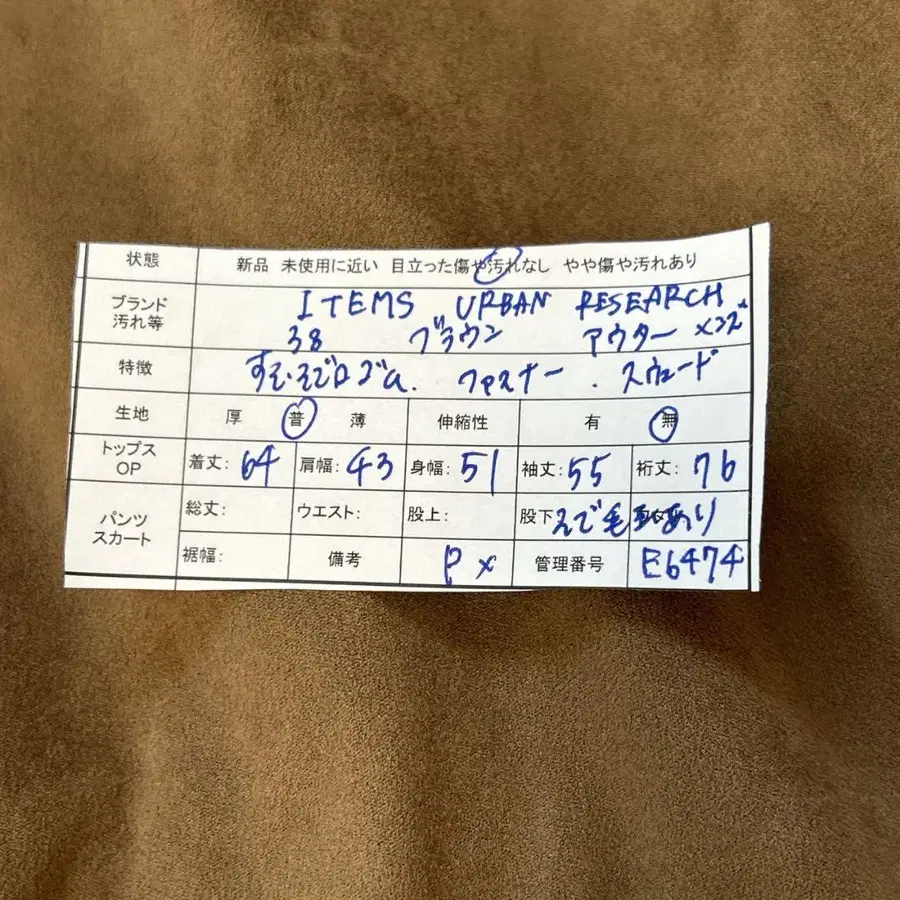 状態 新品 未使用に近い 目立った傷や汚れなし やや傷や汚れあり
ブランド ITEMS URBAN RESEARCH
汚れ等 38 ブラウン アウター
特徴 すそ・そで口ゴム. ファスナー. スウェード
生地 厚 普 薄 伸縮性 有 無
トップス
OP 着丈: 64 肩幅: 43 身幅: 51 袖丈: 55 裄丈: 76
パンツ
スカート 総丈: ウエスト: 股上: 股下 そで毛あり
裾幅: 備考 P x 管理番号 E6474